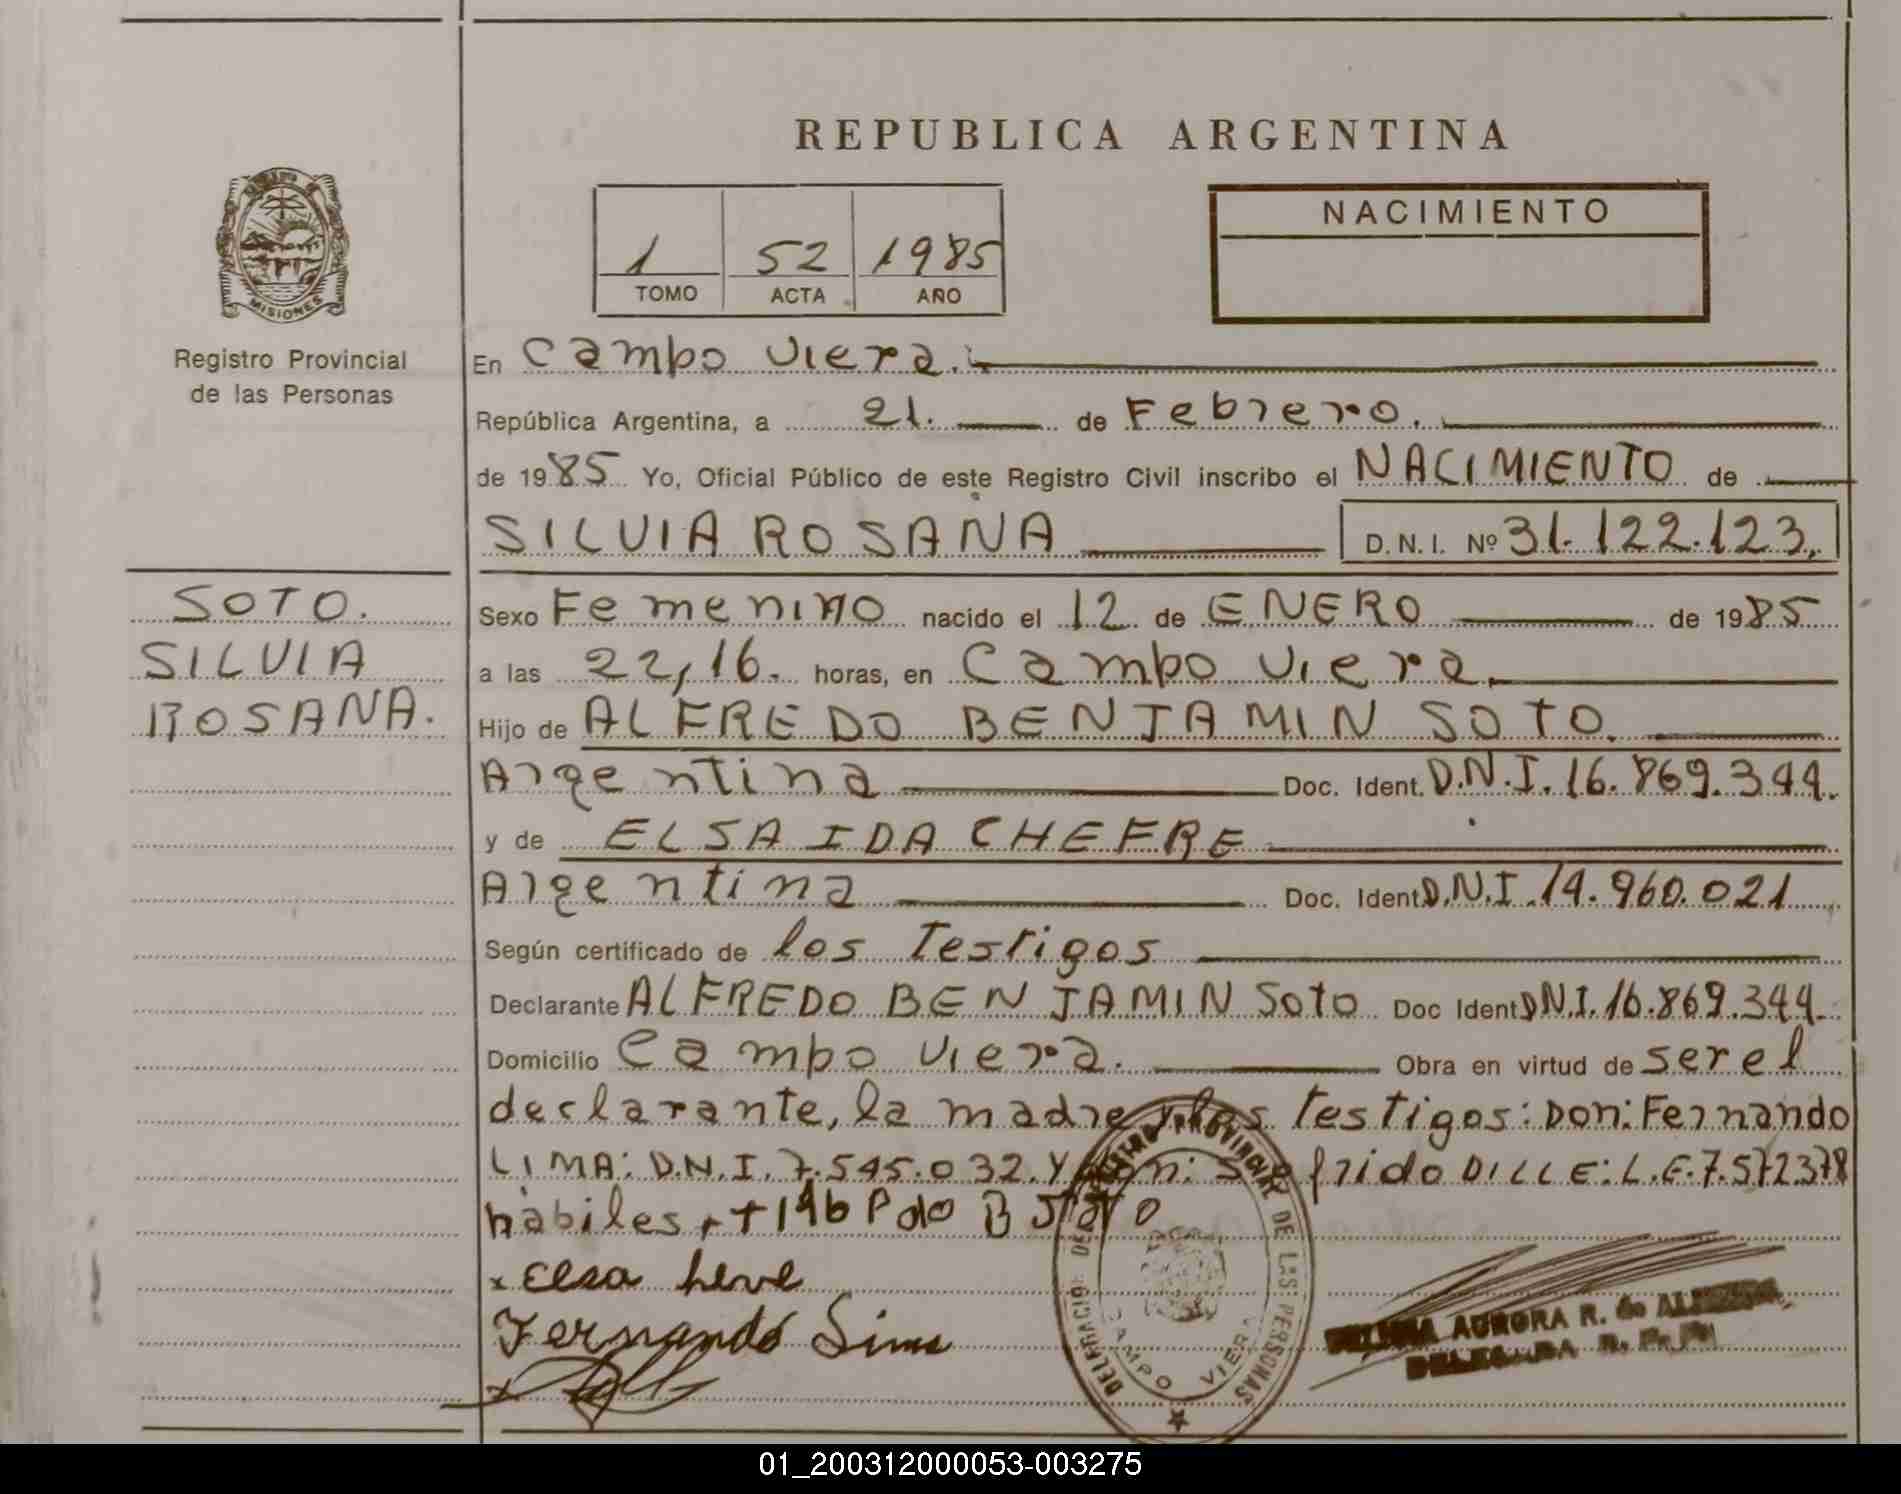 REPUBLICA ARGENTINA
MISIONES
Registro Provincial
de las Personas
1 52 1985
TOMO ACTA AÑO
NACIMIENTO
En Campo Viera.
República Argentina, a 21. de Febrero.
de 1985 Yo, Oficial Público de este Registro Civil inscribo el NACIMIENTO de
SILVIA ROSANA D.N.I. Nº 31.122.123,
SOTO.
SILVIA
ROSANA.
Sexo Femenino nacido el 12 de ENERO de 1985
a las 22,16. horas, en Campo Viera.
Hijo de ALFREDO BENJAMIN SOTO.
Argentina Doc. Ident. D.N.I. 16.869.344.
y de ELSA IDA CHEFRE
Argentina Doc. Ident D.N.I. 14.960.021
Según certificado de los Testigos
Declarante ALFREDO BENJAMIN Soto Doc Ident D.N.I. 16.869.344.
Domicilio Campo Viera. Obra en virtud de ser el
declarante, la madre y los testigos: Don: Fernando
LIMA: D.N.I. 7.545.032. Y Don: DILLE: L.E. 7.572.378
habiles
Elsa
Fernando Lima
DELEGACION DEL REGISTRO PROVINCIAL DE LAS PERSONAS
CAMPO VIERA
AURORA R. de
DELEGADA R. P. P.
01_200312000053-003275